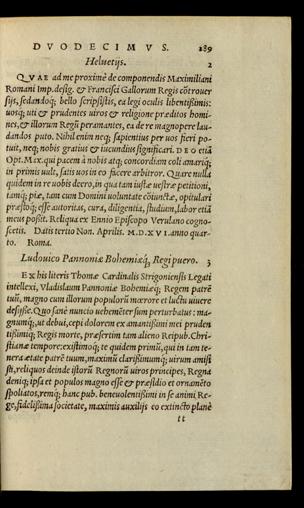 DVODECIMVS. 189
Heluetijs. 2
QVAE ad me proximè de componendis Maximiliani
Romani Imp. desig. & Francisci Gallorum Regis cõtrouer
sijs, sedandoq; bello scripsistis, ea legi oculis libentißimis:
uosq; uti & prudentes uiros & religione præditos homi-
nes, & illorum Regũ peramantes, ea de re magnopere lau-
dandos puto. Nihil enim nec sapientius per uos fieri po-
tuit, neq; nobis gratius & iucundius significari. DEO etiã
Opt. Max. qui pacem à nobis atq; concordiam coli amariq;
in primis uult, satis uos in eo facere arbitror. Quare nulla
quidem in re uobis deero, in qua tam iustæ uestræ petitioni,
tamq; piæ, tam cum Domini uoluntate cõiunctæ, opitulari
præstoq; esse autoritas, cura, diligentia, studium, labor etiã
meus poßit. Reliqua ex Ennio Episcopo Verulano cogno-
scetis. Datis tertio Non. Aprilis. M.D.XVI. anno quar-
to. Roma.
Ludouico Pannoniæ Bohemiæq; Regi puero. 3
Ex his literis Thomæ Cardinalis Strigoniensis Legati
intellexi, Vladislaum Pannoniæ Bohemiæq; Regem patrẽ
tuũ, magno cum illorum populorũ mœrore et luctu uiuere
desijsse. Quo sanè nuncio uehemẽter sum perturbatus: ma-
gnumq;, ut debui, cepi dolorem ex amantißimi mei pruden
tißimiq; Regis morte, præsertim tam alieno Reipub. Chri-
stianæ tempore: existimoq; te quidem primũ, qui in tam te-
nera ætate patrẽ tuum, maximũ clarißimumq; uirum amisi
sti, reliquos deinde istorũ Regnorũ uiros principes, Regna
deniq; ipsa et populos magno esse & præsidio et ornamẽto
spoliatos, remq; hanc pub. beneuolentißimi in se animi Re-
ge, fidelißima societate, maximis auxilijs eo extincto planè
tt